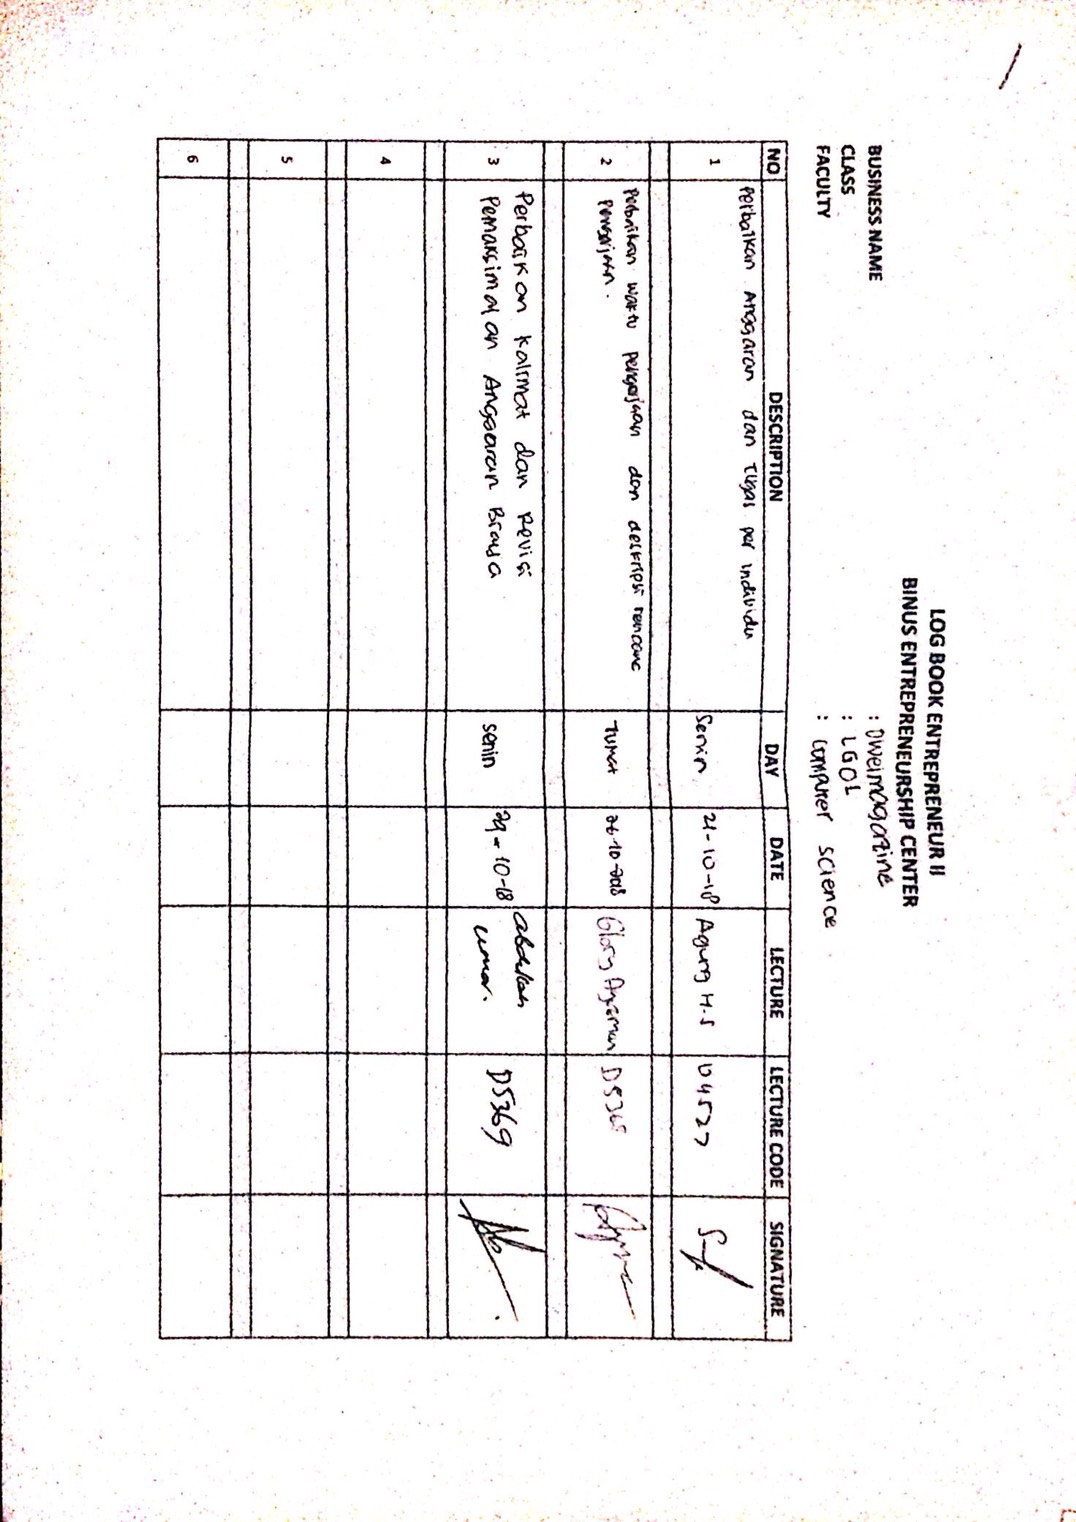 LOG BOOK ENTREPRENEUR II
BINUS ENTREPRENEURSHIP CENTER
BUSINESS NAME : Dweimagazine
CLASS : LG01
FACULTY : Computer science
NO DESCRIPTION DAY DATE LECTURE LECTURE CODE SIGNATURE
1 Perbaikan Anggaran dan Tugas per individu Senin 21-10-18 Agung H.S D4527
2 Perbaikan waktu pengerjaan dan deskripsi rencana Jumat 26-10-2018 Glory Aguzman
pengerjaan.
3 Perbaikan kalimat dan Revisi senin 29-10-18 abdullah D5369
Pemaksimalan Anggaran Biaya umar.
4
5
6